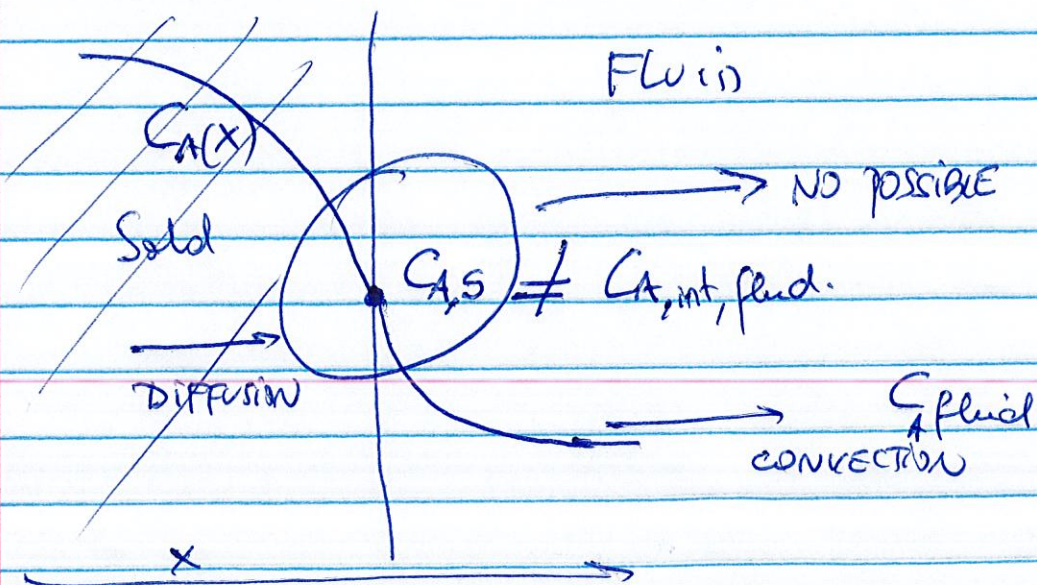 FLUID
CA(x)
NO POSSIBLE
Solid
CA,S ≠ CA,int,fluid.
DIFFUSION
CA fluid
CONVECTION
x